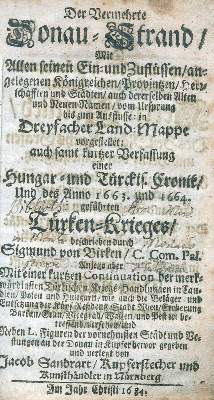 Der Vermehrte
Donau-Strand/
Mit
Allen seinen Ein- und Zuflüssen/ an-
gelegenen Königreichen/ Provintzen/ Herr-
schafften und Städten/ auch dererselben Alten
und Neuen Namen/ vom Ursprung
bis zum Ausflusse: in
Dreyfacher Land-Mappe
vorgestellet:
auch samt kurtzer Verfassung
einer
Hungar- und Türckis. Cronik/
Und des Anno 1663. und 1664.
geführten
Türken-Krieges/
beschrieben durch
Sigmund von Birken/ C. Com. Pal.
Anjetzo aber
Mit einer kurtzen Continuation der merk-
würdigsten Türkischen Kriegs-Handlungen in Can-
dien/ Polen und Hungarn/ wie auch die Beläger- und
Entsetzung der Stadt Wien/ Eroberung
Barkan/ Gran/
Neben Figuren der vornehmsten Städt und Ve-
stungen an der Donau in Kupfer hervor gegeben
und verlegt von
Jacob Sandrart/ Kupferstecher und
Kunsthändler in Nürnberg
Im Jahr Christi 1684.